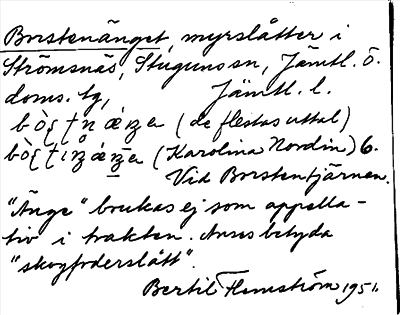 Borstenänget, myrslåtter i
Strömsnäs, Stuguns sn, Jämtl. ö.
doms. tg, Jämtl. l.
(de flestas uttal)
(Karolina Nordin) 6.
Vid Borstentjärnen.
"Änge" brukas ej som appella-
tiv i trakten. Anses betyda
"skogfoderslått".
Bertil Flemström 1951.